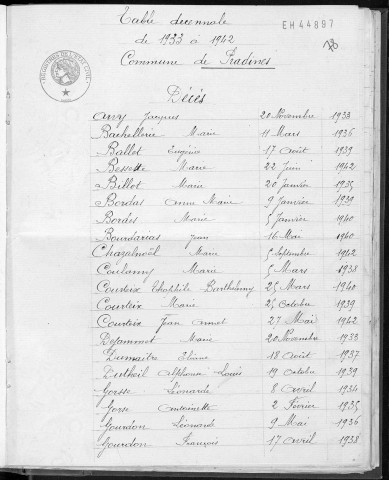 Table décennale
EH44897
de 1933 à 1942
78
Commune de Pradines
Décès
Amy Jacques 20 Novembre 1933
Bachellerie Marie 11 Mars 1936
Ballot Eugénie 17 août 1939
Bessette Marie 22 Juin 1942
Billot Marie 20 Janvier 1935
Bordas Anna Marie 9 Janvier 1939
Bordes Marie 5 Janvier 1940
Bourdarias Jean 16 Mai 1940
Chazalnoël Marie 5 Septembre 1942
Coulamy Marie 5 Mars 1938
Couteix Théophile Barthélemy 25 Mars 1940
Courteix Marie 25 Octobre 1939
Couteix Jean Annet 27 Mai 1942
Dejammet Marie 20 Novembre 1933
Dumaitre Etienne 18 août 1937
Dutheil Alphonse Louis 19 Octobre 1939
Gorsse Léonarde 8 avril 1934
Gorse Antoinette 2 Février 1935
Gourdon Léonard 9 Mai 1936
Gourdon François 17 avril 1938